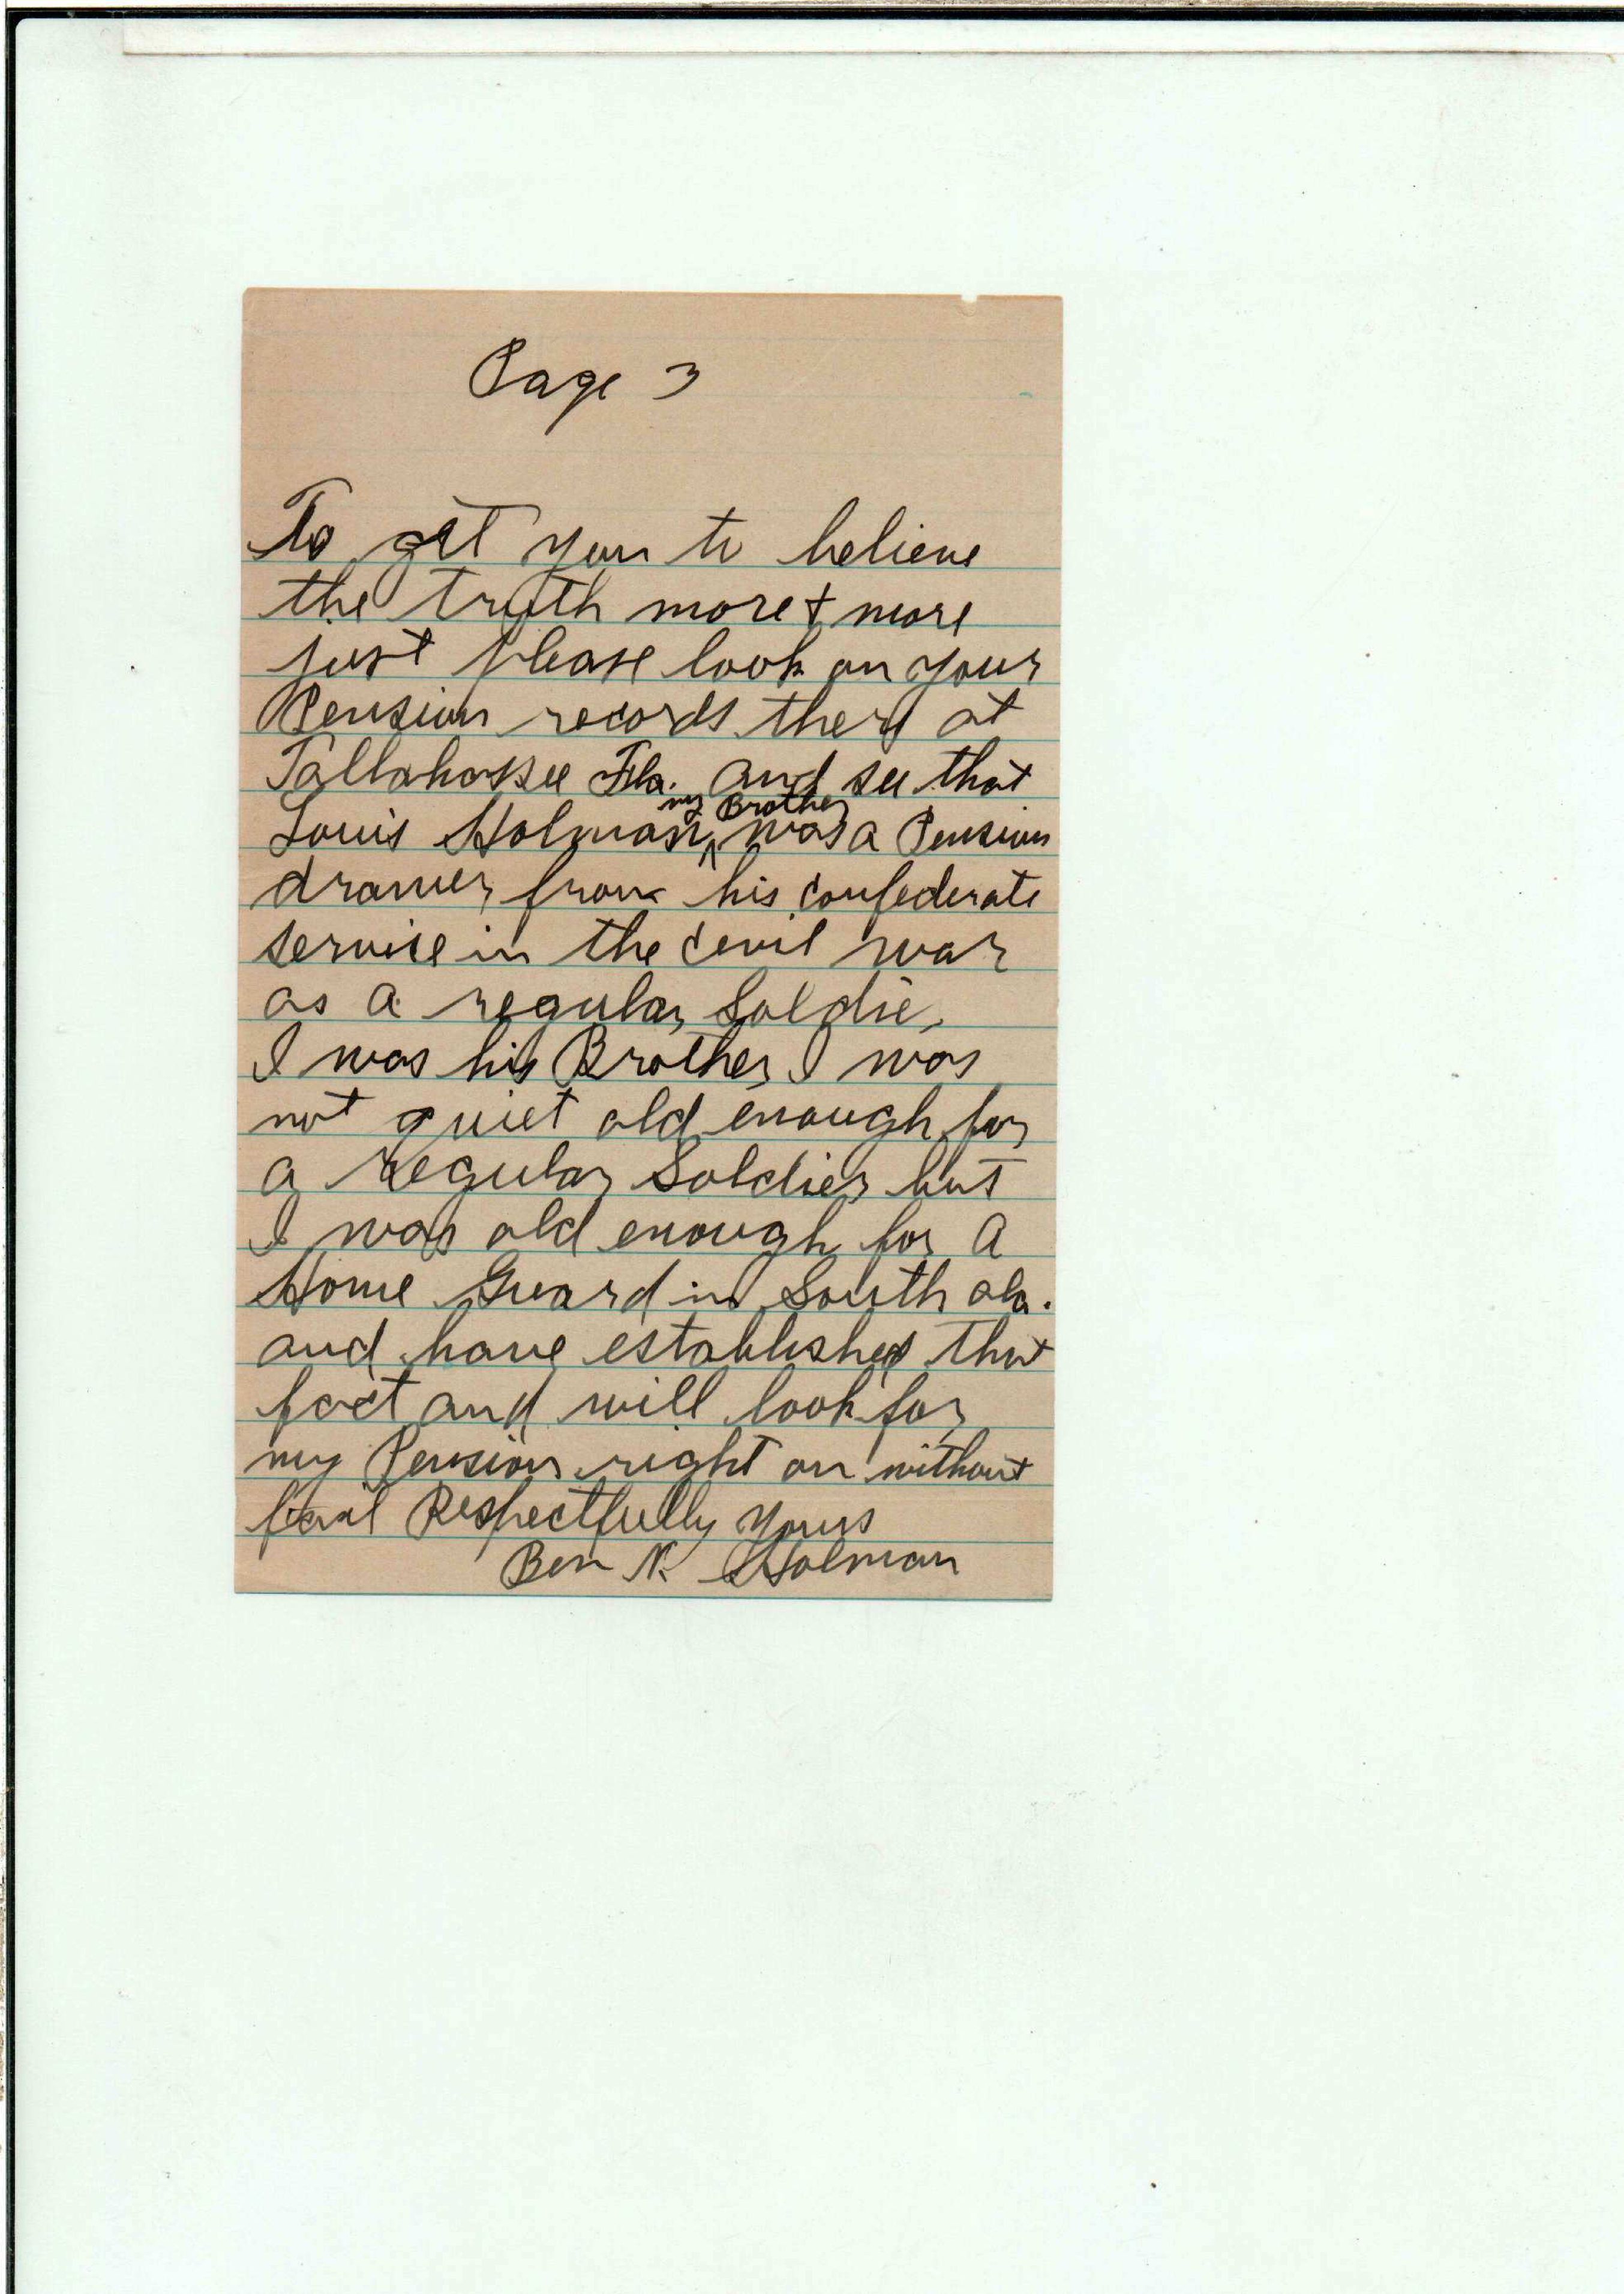 Page 3
To get you to believe
the truth more + more
just please look on your
Pension records there at
Tallahassee Fla. and see that
my Brother
Louis Holman, ^ was a Pension
drawer from his confederate
service in the cevil war
as a regular Soldie,
I was his Brother I was
not quiet old enough for
a regular Soldier but
I was old enough for A
Home Guard in South ala.
and have established that
fact and will look for
my Pension right on without
fail Respectfully yours
Ben N. Holman